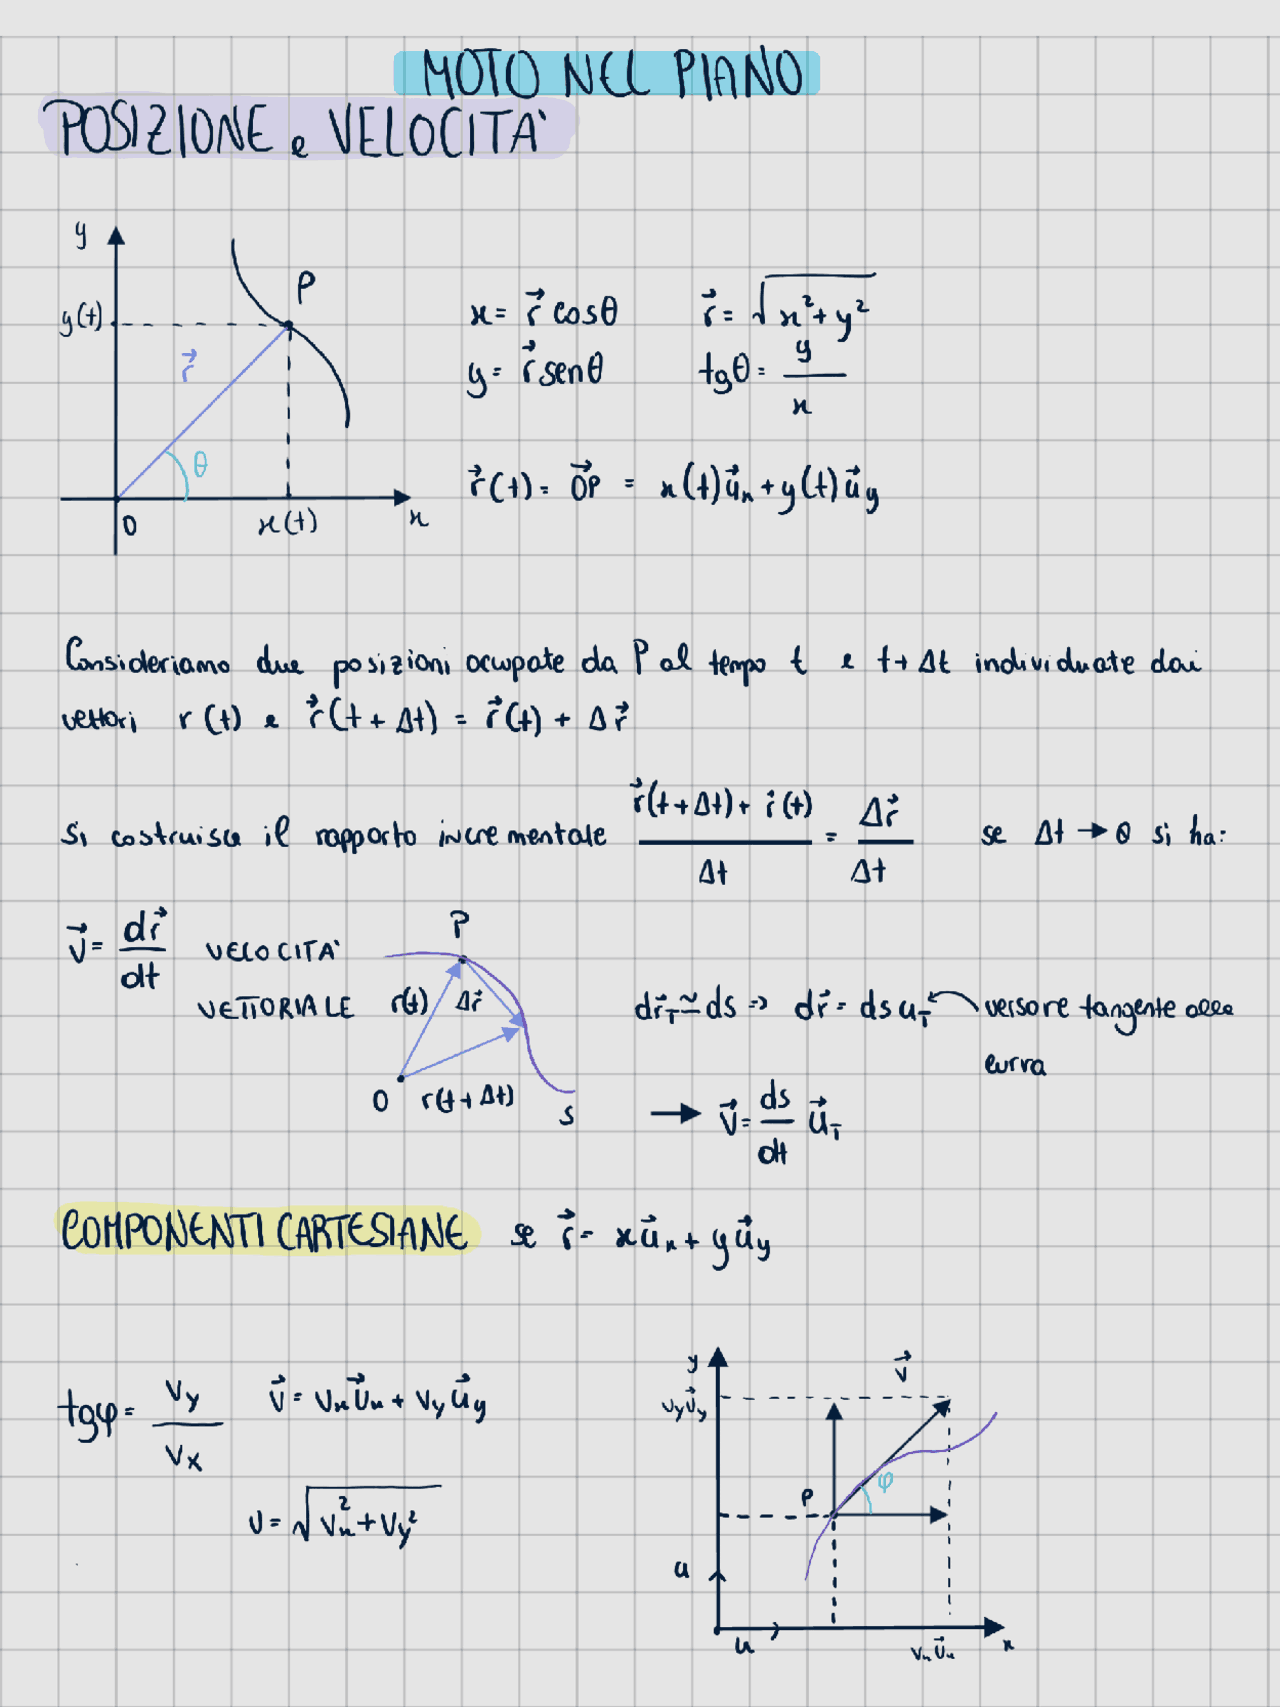 MOTO NEL PIANO
POSIZIONE e VELOCITA'
y
P
y(t)
r⃗
θ
0
x(t)
x
x = r⃗ cosθ
r⃗ = √(x²+y²)
y = r⃗ senθ
tgθ = y/x
r⃗(t) = OP⃗ = x(t)u⃗x + y(t)u⃗y
Consideriamo due posizioni occupate da P al tempo t e t+Δt individuate dai
vettori r(t) e r⃗(t+Δt) = r⃗(t) + Δr⃗
Si costruisce il rapporto incrementale (r⃗(t+Δt) + r⃗(t))/Δt = Δr⃗/Δt se Δt → 0 si ha:
v⃗ = dr⃗/dt VELOCITA'
VETTORIALE
P
r(t)
Δr⃗
0
r(t+Δt)
s
dr⃗T ≃ ds => dr⃗ = ds uT versore tangente alla
curva
→ v⃗ = ds/dt u⃗T
COMPONENTI CARTESIANE se r⃗ = xu⃗x + yu⃗y
tgφ = vy/vx
v⃗ = vxu⃗x + vyu⃗y
v = √(vx²+vy²)
y
v⃗
vyu⃗y
P
φ
u
u
vxu⃗x
x